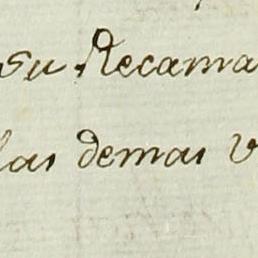 su Recama
las demas v